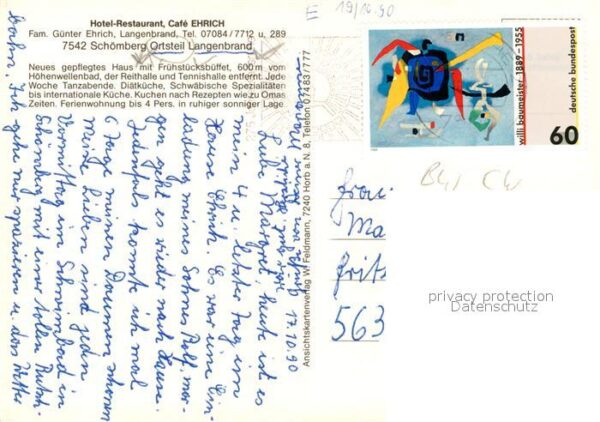 Hotel-Restaurant, Café EHRICH
Fam. Günter Ehrich, Langenbrand, Tel. 07084/7712 u. 289
7542 Schömberg Ortsteil Langenbrand
Neues gepflegtes Haus mit Frühstücksbüffet, 600 m vom
Höhenwellenbad, der Reithalle und Tennishalle entfernt. Jede
Woche Tanzabende. Diätküche, Schwäbische Spezialitäten
bis internationale Küche. Kuchen nach Rezepten wie zu Omas
Zeiten. Ferienwohnung bis 4 Pers. in ruhiger sonniger Lage.
19/10.90
willi baumeister 1889-1955
deutsche bundespost
60
Ansichtskartenverlag W. Feldmann, 7240 Horb a. N. 8, Telefon 07483/777
17.10.90
Liebe Margret, heute ist es
mein 4 u. letzter Tag im
Hause Ehrich. Es war eine Ein-
ladung meines Sohnes Rolf, mor-
gen geht es wieder nach Hause.
Jedenfalls konnte ich mal
6 Tage meinen Daumen schonen
Meine Lieben sind jeden
Vormittag im Schwimbad in
Schömberg mit einer tollen Rutsch-
bahn. Ich gehe nur spazieren u. das Wetter
Frau
Ma
Fritz
563
privacy protection
Datenschutz